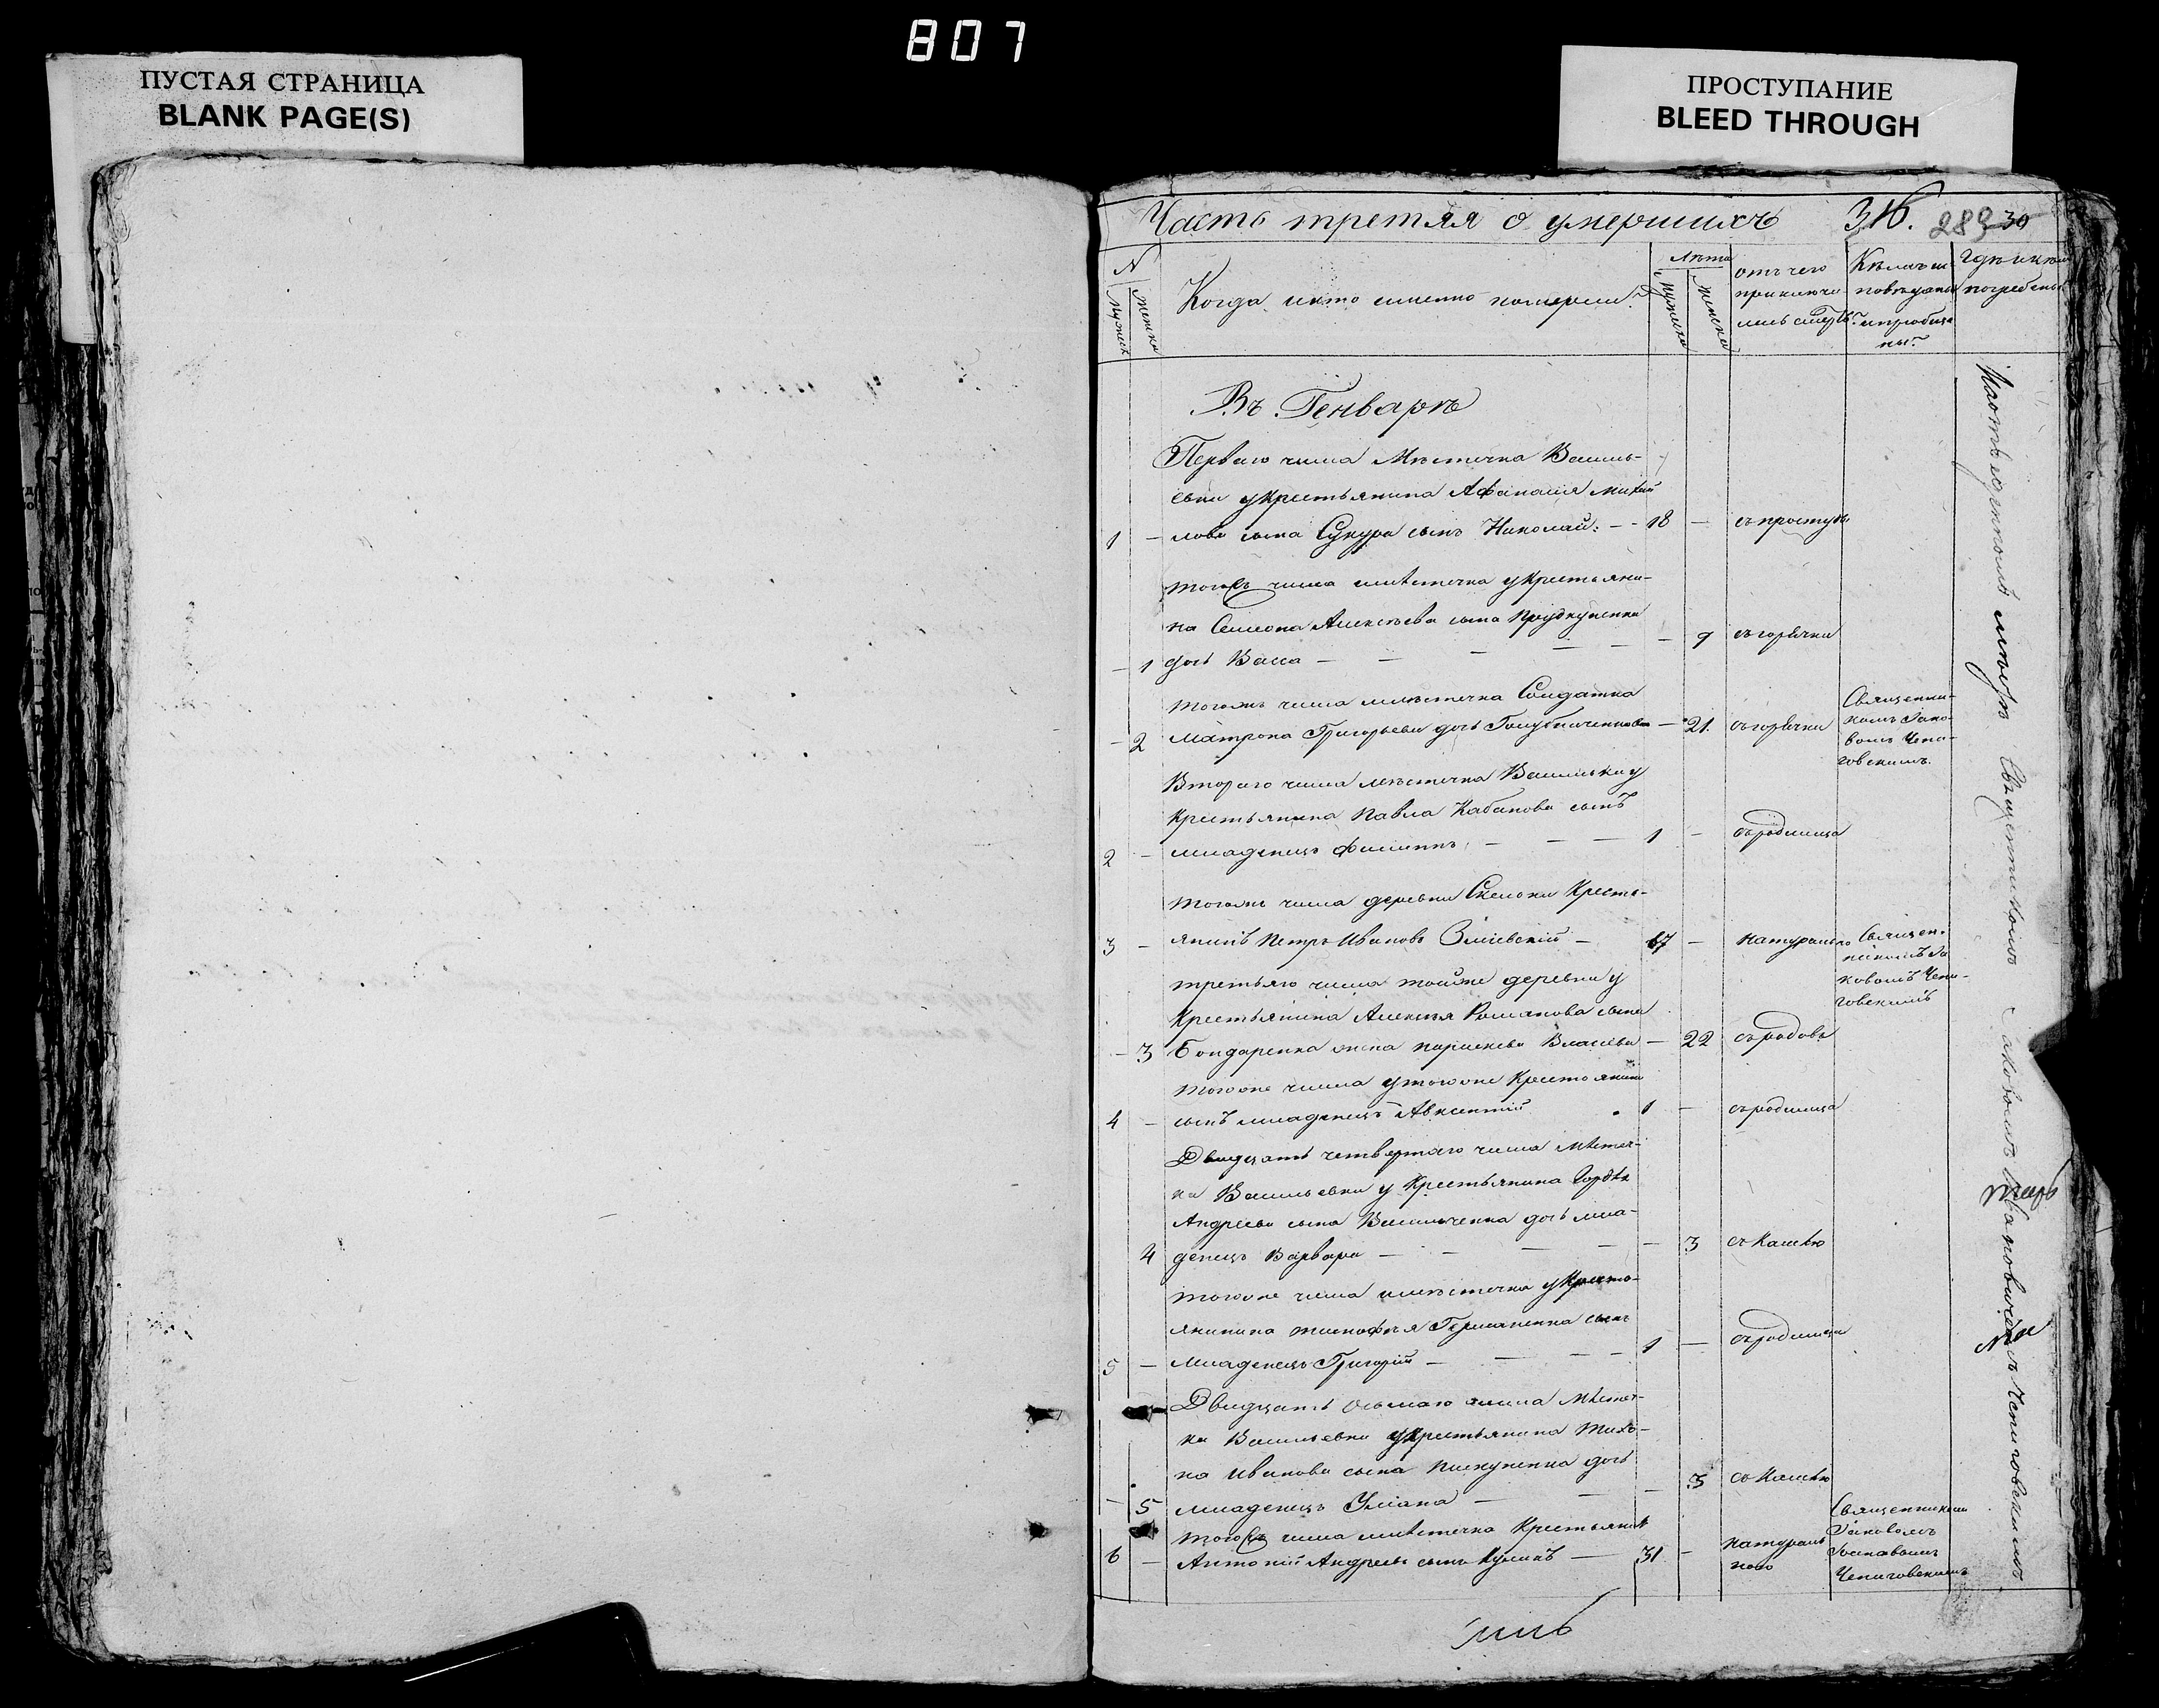 807
ПУСТАЯ СТРАНИЦА
BLANK PAGE(S)
ПРОСТУПАНИЕ
BLEED THROUGH
Часть третяя о умершихъ 316. 289 30
№ Лѣта отъ чего Кѣмъ ис- Гдѣ и кѣмъ
Когда и кто именно померли? приключи повѣданы погребены
лась смерть? и приобще
ны?
Въ Генварѣ
Перваго числа Мѣстечка Василь-
евки у крестьянина Афанасія Михай
1 — лова сына Сукура сынъ Николай. — 18 — съ простуды
тогожъ числа мѣстечка у крестьяни-
на Семена Алексѣева сына
— 1 дочь Васса — — — — — 9 съ горячки
тогожъ числа мѣстечка Солдатка
— 2 Матрона Григорьева дочь — 21. съ горячки
Священни-
комъ Іако-
вомъ Чепи-
говскимъ.
Втораго числа мѣстечка Васильевки у
Крестьянина Павла Кабанова сынъ
2 — младенецъ Филиппъ — — — 1 — съ родимца
тогожъ числа деревни Скельки Кресть-
3 — янинъ Петръ Ивановъ Зміевскій — 67 — натурально
Священ-
никомъ Іа
ковомъ Чепи-
говскимъ
третьяго числа тойже деревни у
Крестьянина Алексѣя Романова сына
— 3 Бондаренка жена Параскева Власіева — 22 съ родовъ
тогоже числа у тогоже Крестьянина
4 — сынъ младенецъ Авксентій 1 — съ родимца
Двадцать четвертаго числа Мѣстеч-
ка Васильевки у Крестьянина Гордѣя
Андреева сына Васильченка дочь мла-
4 денецъ Варвара — — — — — 3 съ Кашлю
тогоже числа мѣстечка у Кресть-
янина Тимофѣя Германенка сынъ
5 — младенецъ Григорій — — — — 1 — съ родимца
Двадцать осьмаго числа Мѣстеч-
ка Васильевки у крестьянина Тихо-
на Иванова сына дочь
— 5 младенецъ Уліана — — — 3 съ Кашлю
тогожъ числа мѣстечка Крестьянинъ
6 — Антоній Андреевъ сынъ Куликъ — 31 — натураль
ново
Священникомъ
Іаковомъ
Чепиговскимъ
На отведенномъ мѣстѣ Священникомъ Іаковомъ Ивановичемъ Чепиговскимъ